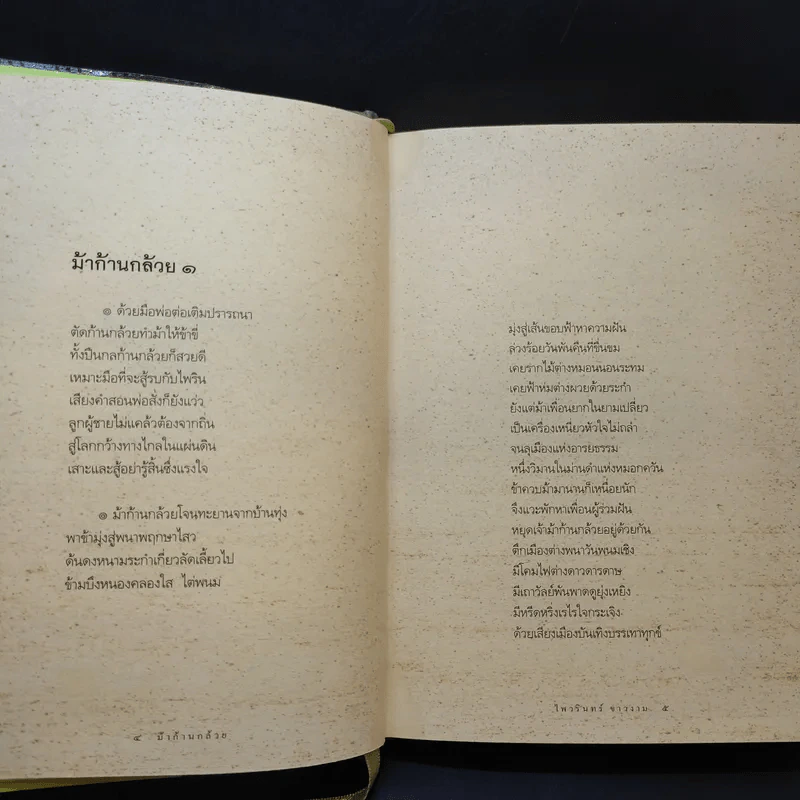 ม้าก้านกล้วย ๑
๏ ด้วยมือพ่อต่อเติมปรารถนา
ตัดก้านกล้วยทำม้าให้ข้าขี่
ทั้งปืนกลก้านกล้วยก็สวยดี
เหมาะมือที่จะสู้รบกับไพริน
เสียงคำสอนพ่อสั่งก็ยังแว่ว
ลูกผู้ชายไม่แคล้วต้องจากถิ่น
สู่โลกกว้างทางไกลในแผ่นดิน
เสาะและสู้อย่ารู้สิ้นซึ่งแรงใจ
๏ ม้าก้านกล้วยโจนทะยานจากบ้านทุ่ง
พาข้ามุ่งสู่พนาพฤกษาไสว
ด้นดงหนามระกำเกี่ยวลัดเลี้ยวไป
ข้ามบึงหนองคลองใส ไต่พนม
๔ ม้าก้านกล้วย
มุ่งสู่เส้นขอบฟ้าหาความฝัน
ล่วงร้อยวันพันคืนที่ขื่นขม
เคยรากไม้ต่างหมอนนอนระทม
เคยฟ้าห่มต่างผวยด้วยระกำ
ยังแต่ม้าเพื่อนยากในยามเปลี่ยว
เป็นเครื่องเหนี่ยวหัวใจไม่ถลำ
จนลุเมืองแห่งอารยธรรม
หนึ่งวิมานในม่านดำแห่งหมอกควัน
ข้าควบม้ามานานก็เหนื่อยนัก
จึงแวะพักหาเพื่อนผู้ร่วมฝัน
หยุดเจ้าม้าก้านกล้วยอยู่ด้วยกัน
ตึกเมืองต่างพนาวันพนมเชิง
มีโคมไฟต่างดาวดารดาษ
มีเถาวัลย์พันพาดดูยุ่งเหยิง
มีหรีดหริ่งเรไรใจกระเจิง
ด้วยเสียงเมืองบันเทิงบรรเทาทุกข์
ไพวรินทร์ ขาวงาม ๕